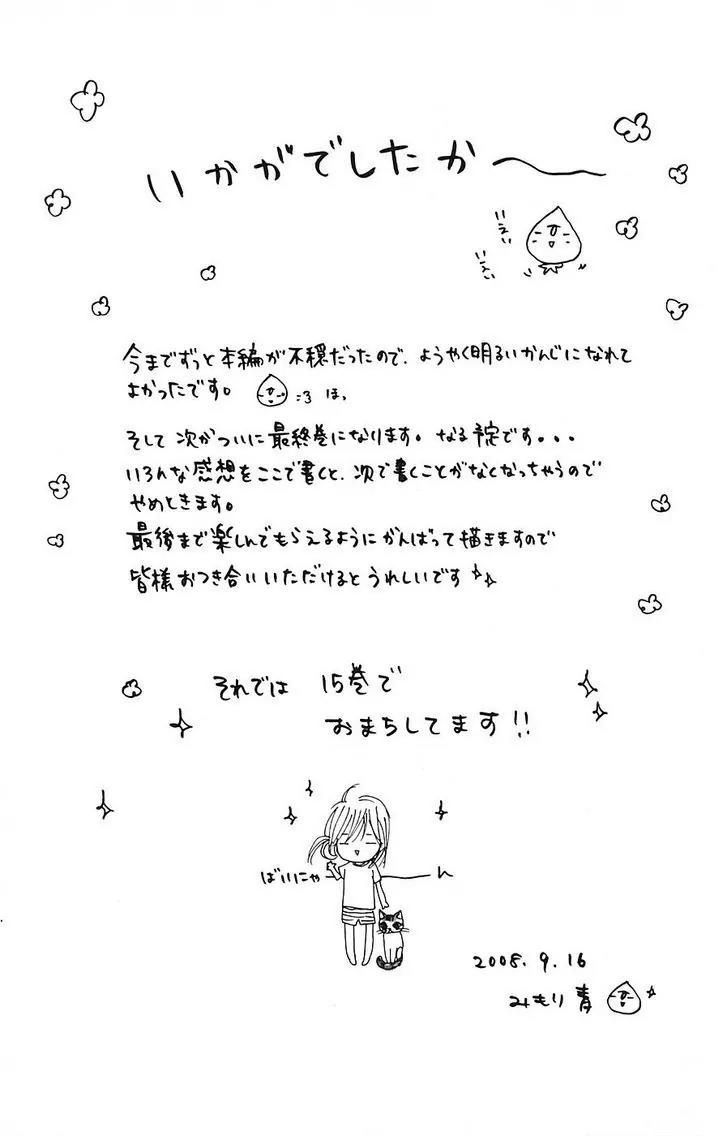 いかがでしたか〜
いえい
いえい
今までずっと本編が不穏だったので、ようやく明るいかんじになれて
よかったです。 =3 ほっ
そして次がついに最終巻になります。なる予定です。。。
いろんな感想をここで書くと、次で書くことがなくなっちゃうので
やめときます。
最後まで楽しんでもらえるようにがんばって描きますので
皆様おつき合いいただけるとうれしいです
それでは 15巻で
おまちしてます!!
ばいにゃ――ん
2008.9.16
みもり青